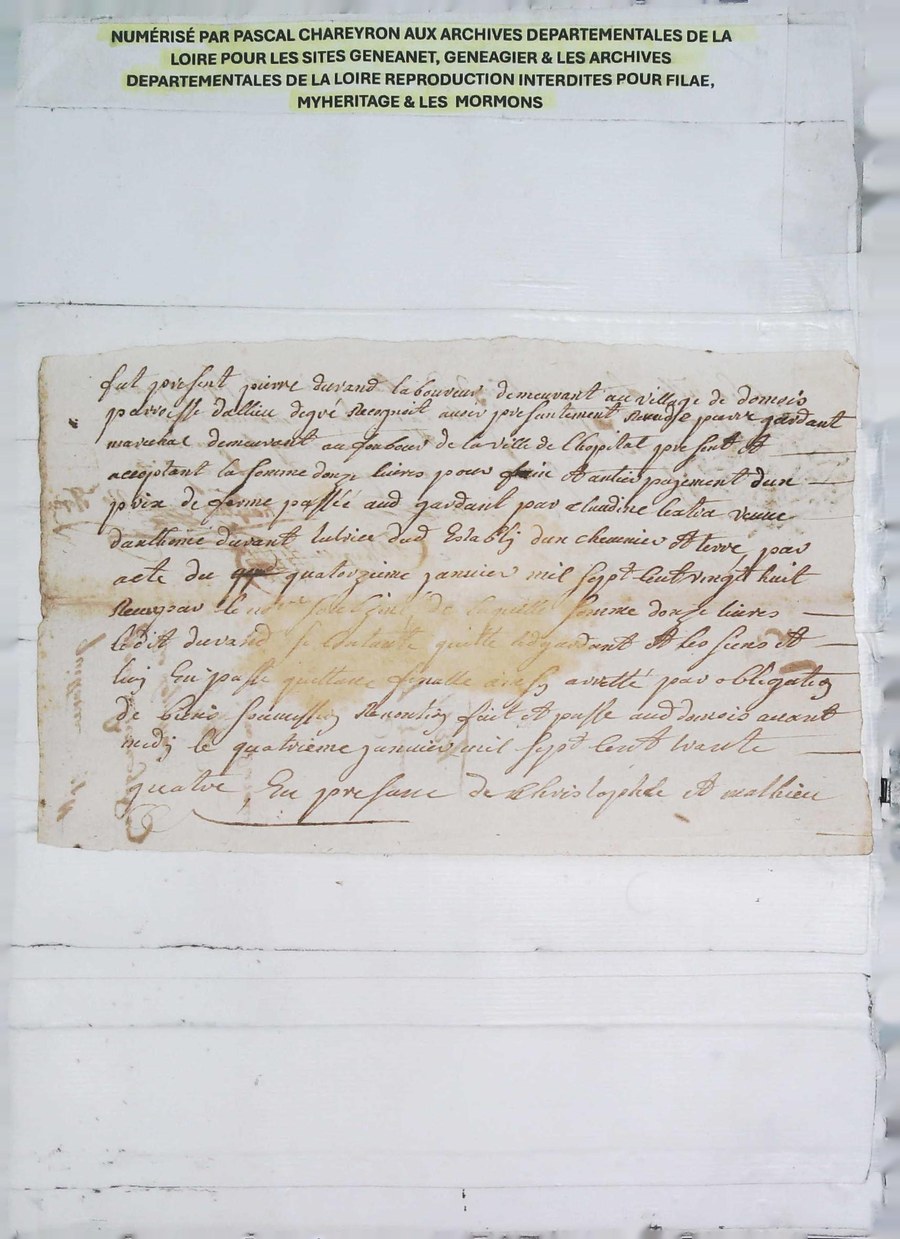 NUMÉRISÉ PAR PASCAL CHAREYRON AUX ARCHIVES DEPARTEMENTALES DE LA
LOIRE POUR LES SITES GENEANET, GENEAGIER & LES ARCHIVES
DEPARTEMENTALES DE LA LOIRE REPRODUCTION INTERDITES POUR FILAE,
MYHERITAGE & LES MORMONS
fut present pierre durand laboureur demeurant au village de domois
parroisse dallieu degré Recognoit avoir presentement pierre gardant
marechal demeurant au foubour de la ville de Lhopital present Et
acceptant la somme donze livres pour Et antier payement dun
prix de ferme passée aud gardant par claudine veuve
danthoine durant tutrice dud Estably dun chenevier Et terre, par
acte du quatorzieme janvier mil sept Cent vingt huit
Receu par le de laquelle somme donze livres
ledit durand se contante quitte led gardant Et les siens Et
luy En passe quittance finalle arretté par obligation
de biens soumission Renontion fait Et passé aud domois avant
midy le quatrieme janvier mil sept Cent trante
quatre En presance de Christophle Et mathieu